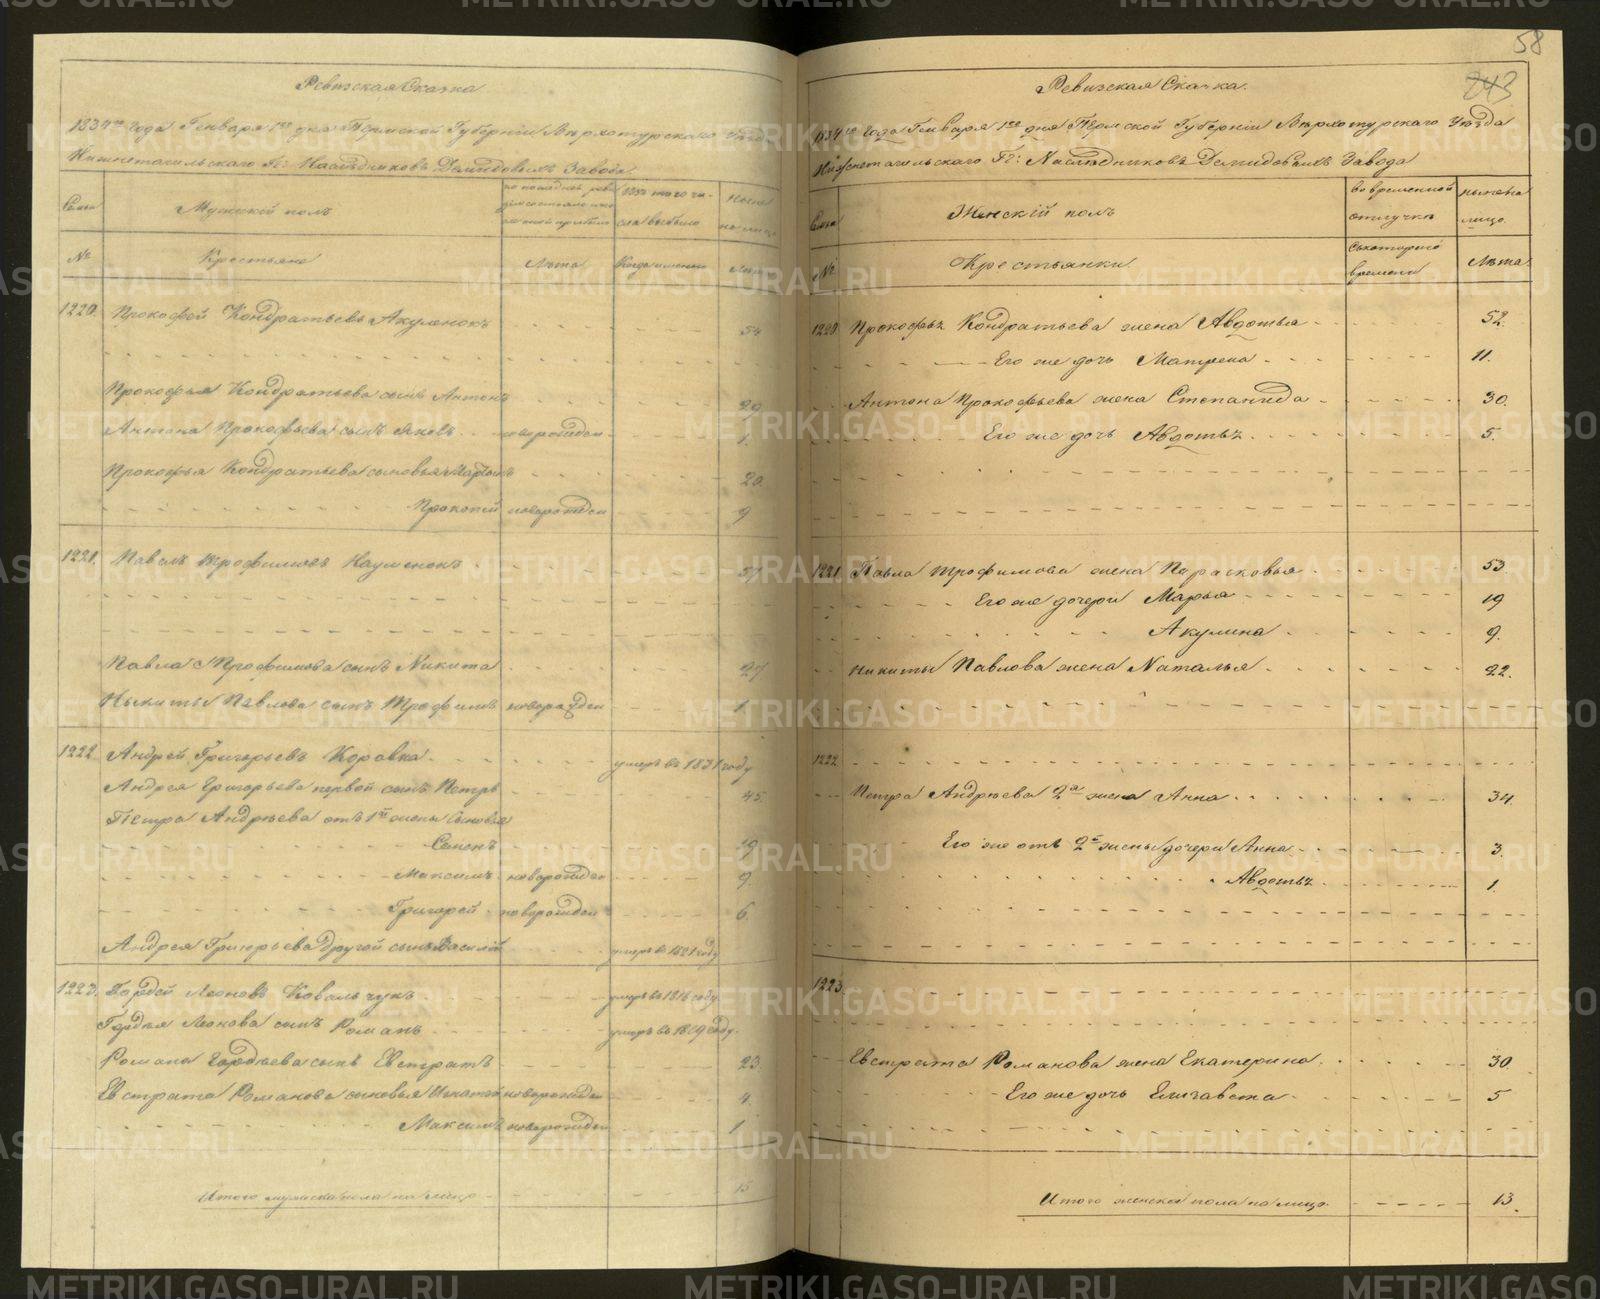 58
243
Ревизская Сказка
1834го года Генваря 1го дня Пермской Губернiи Верхотурскаго Уезда
Нижнетагильскаго Гг: Наследниковъ Демидовыхъ Завода.
Семьи
Мужской полъ
по последней реви
зiи состояло и по
сле того прибыло
Изъ того чи-
сла выбыло
Ныне
на лицо
№
Крестьяне
Лета
Когда именно
Лета
1220. Прокофей Кондратьевъ Акуленокъ 54
Прокофья Кондратьева сынъ Антонъ 29
Антона Прокофьева сынъ Яковъ новорожден 1.
Прокофья Кондратьева сыновья 20.
Прокопiй новорожден 9
1221. Павелъ Трофимовъ Науменокъ 57
Павла Трофимова сынъ Никита 27
Никиты Павлова сынъ Трофимъ новорожден 1
1222 Андрей Григорьевъ Коровка умеръ въ 1831 году
Андрея Григорьева первой сынъ Петръ 45.
Петра Андреева отъ 1й жены сыновья
Семенъ 19
Максимъ новорожден 9
Григорей новорожден 6.
Андрея Григорьева другой сынъ Василiй умеръ въ 1821 году
1223. Гордей Леоновъ Ковальчукъ умеръ въ 1816 году
Гордея Леонова сынъ Романъ умеръ въ 1819 году.
Романа Гордеева сынъ Евстратъ 23.
Евстрата Романова сыновья Игнатей новорожден 4.
Максимъ новорожден 1
Итого мужска пола на лицо 15
Ревизская Сказка.
1834го года Генваря 1го дня Пермской Губернiи Верхотурскаго Уезда
Нижнетагильскаго Гг: Наследниковъ Демидовыхъ Завода
Семьи
Женскiй полъ
во временной
отлучке
ныне на
лицо.
№
Крестьянки
Съкотораго
времени
Лета
1220. Прокофья Кондратьева жена Авдотья 52.
Его же дочь Матрена 11.
Антона Прокофьева жена Степанида 30.
Его же дочь Авдотья 5.
1221. Павла Трофимова жена Парасковья 53
Его же дочери Марья 19
Акулина 9.
Никиты Павлова жена Наталья 22.
1222.
Петра Андреева 2я жена Анна 34.
Его же отъ 2й жены дочери Анна 3.
Авдотья 1.
1223.
Евстрата Романова жена Екатерина 30.
Его же дочь Елисавета 5
Итого женска пола на лицо 13.
METRIKI.GASO-URAL.RU